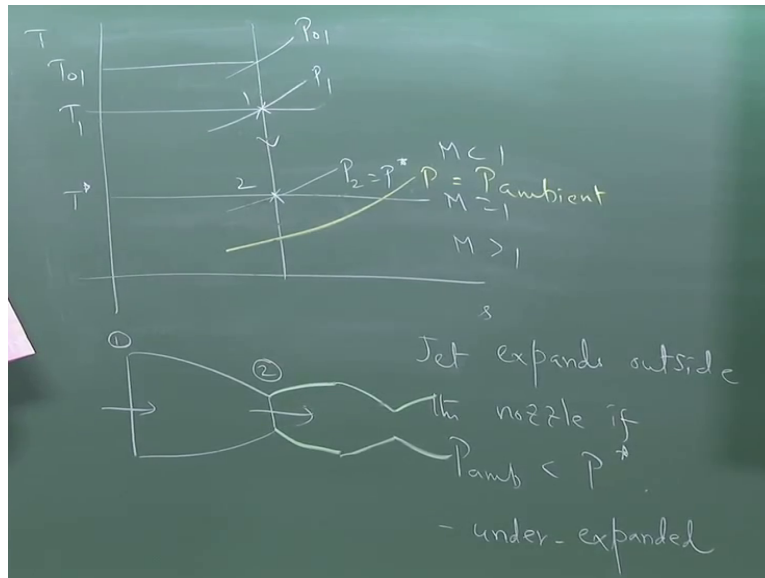 T
P01
T01
P1
1
T1
M < 1
2
P2 = P*
P = Pambient
T*
M = 1
M > 1
s
①
②
Jet expands outside
the nozzle if
Pamb < P*.
- under-expanded